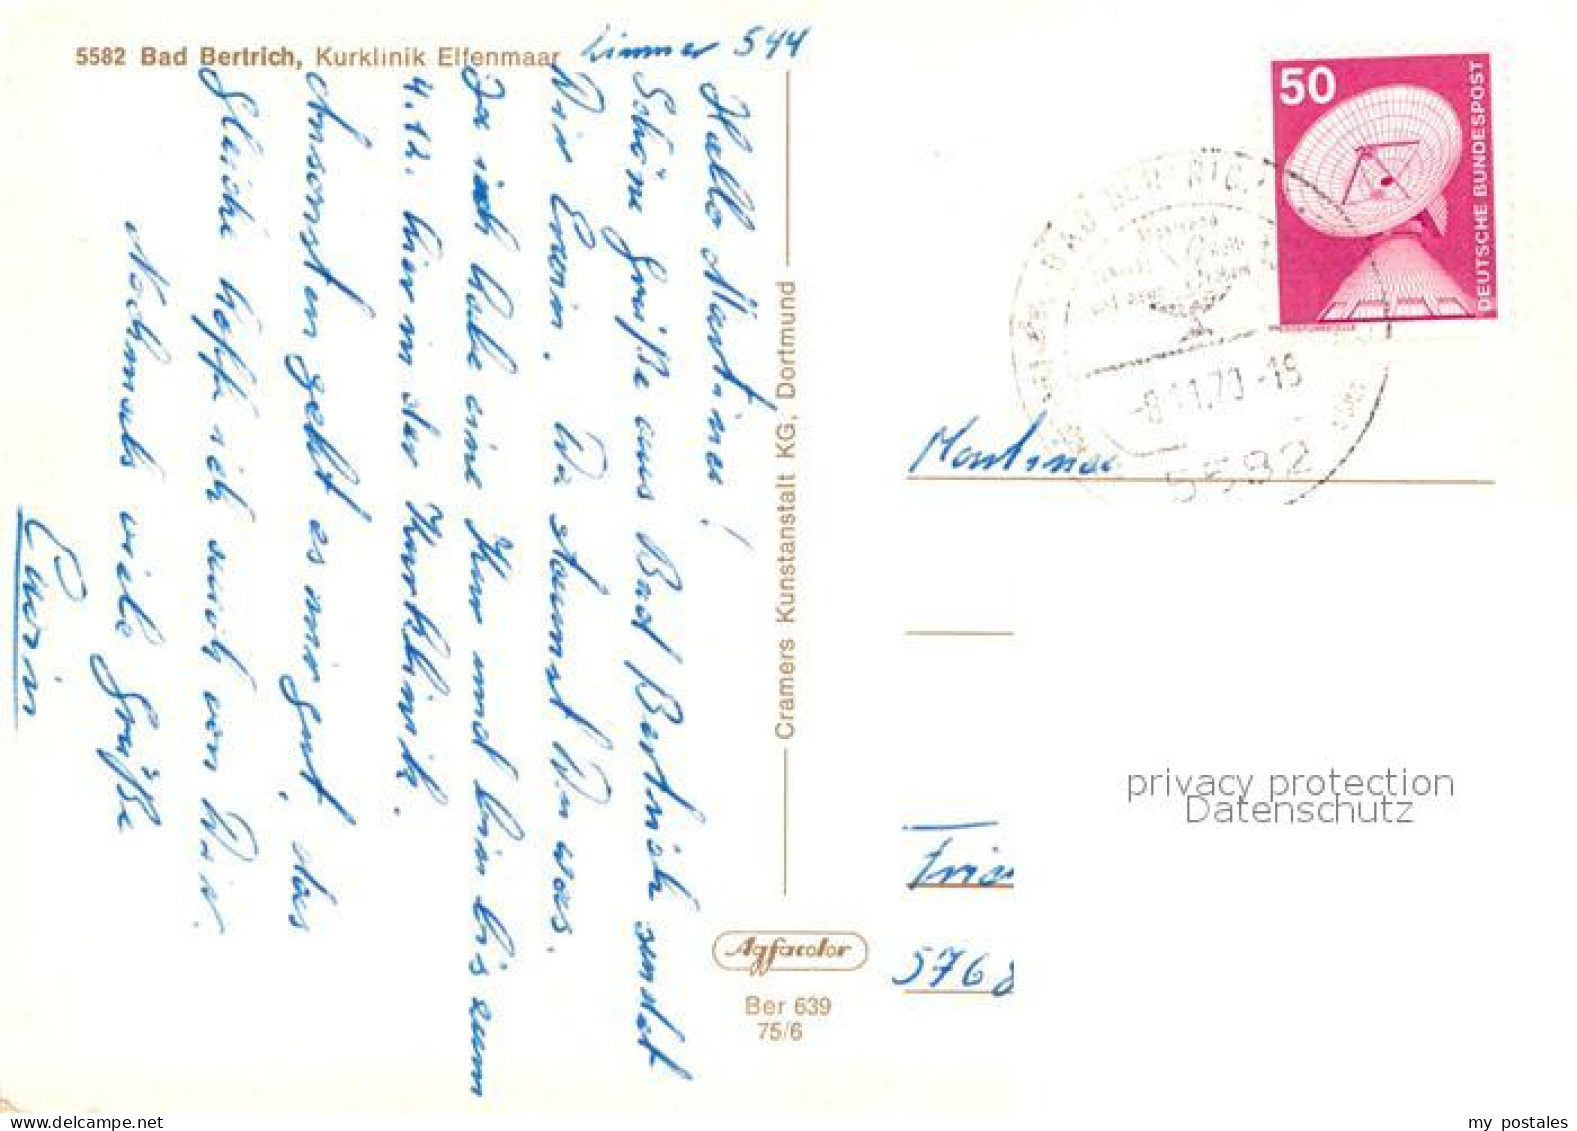 5582 Bad Bertrich, Kurklinik Elfenmaar
Zimmer 544
Hallo Martina!
Schöne Grüße aus Bad Bertrich sendet
Dir Erwin. Da staunst Du was.
Ja ich habe eine Kur und bin bis zum
4.12. hier in der Kurklinik.
Ansonsten geht es mir gut, das
Gleiche hoffe ich auch von Dir.
Nochmals viele Grüße
Erwin
Cramers Kunstanstalt KG, Dortmund
Agfacolor
Ber 639
75/6
50
DEUTSCHE BUNDESPOST
BAD BERTRICH
5582
Martina
5768
privacy protection
Datenschutz
www.delcampe.net
my postales